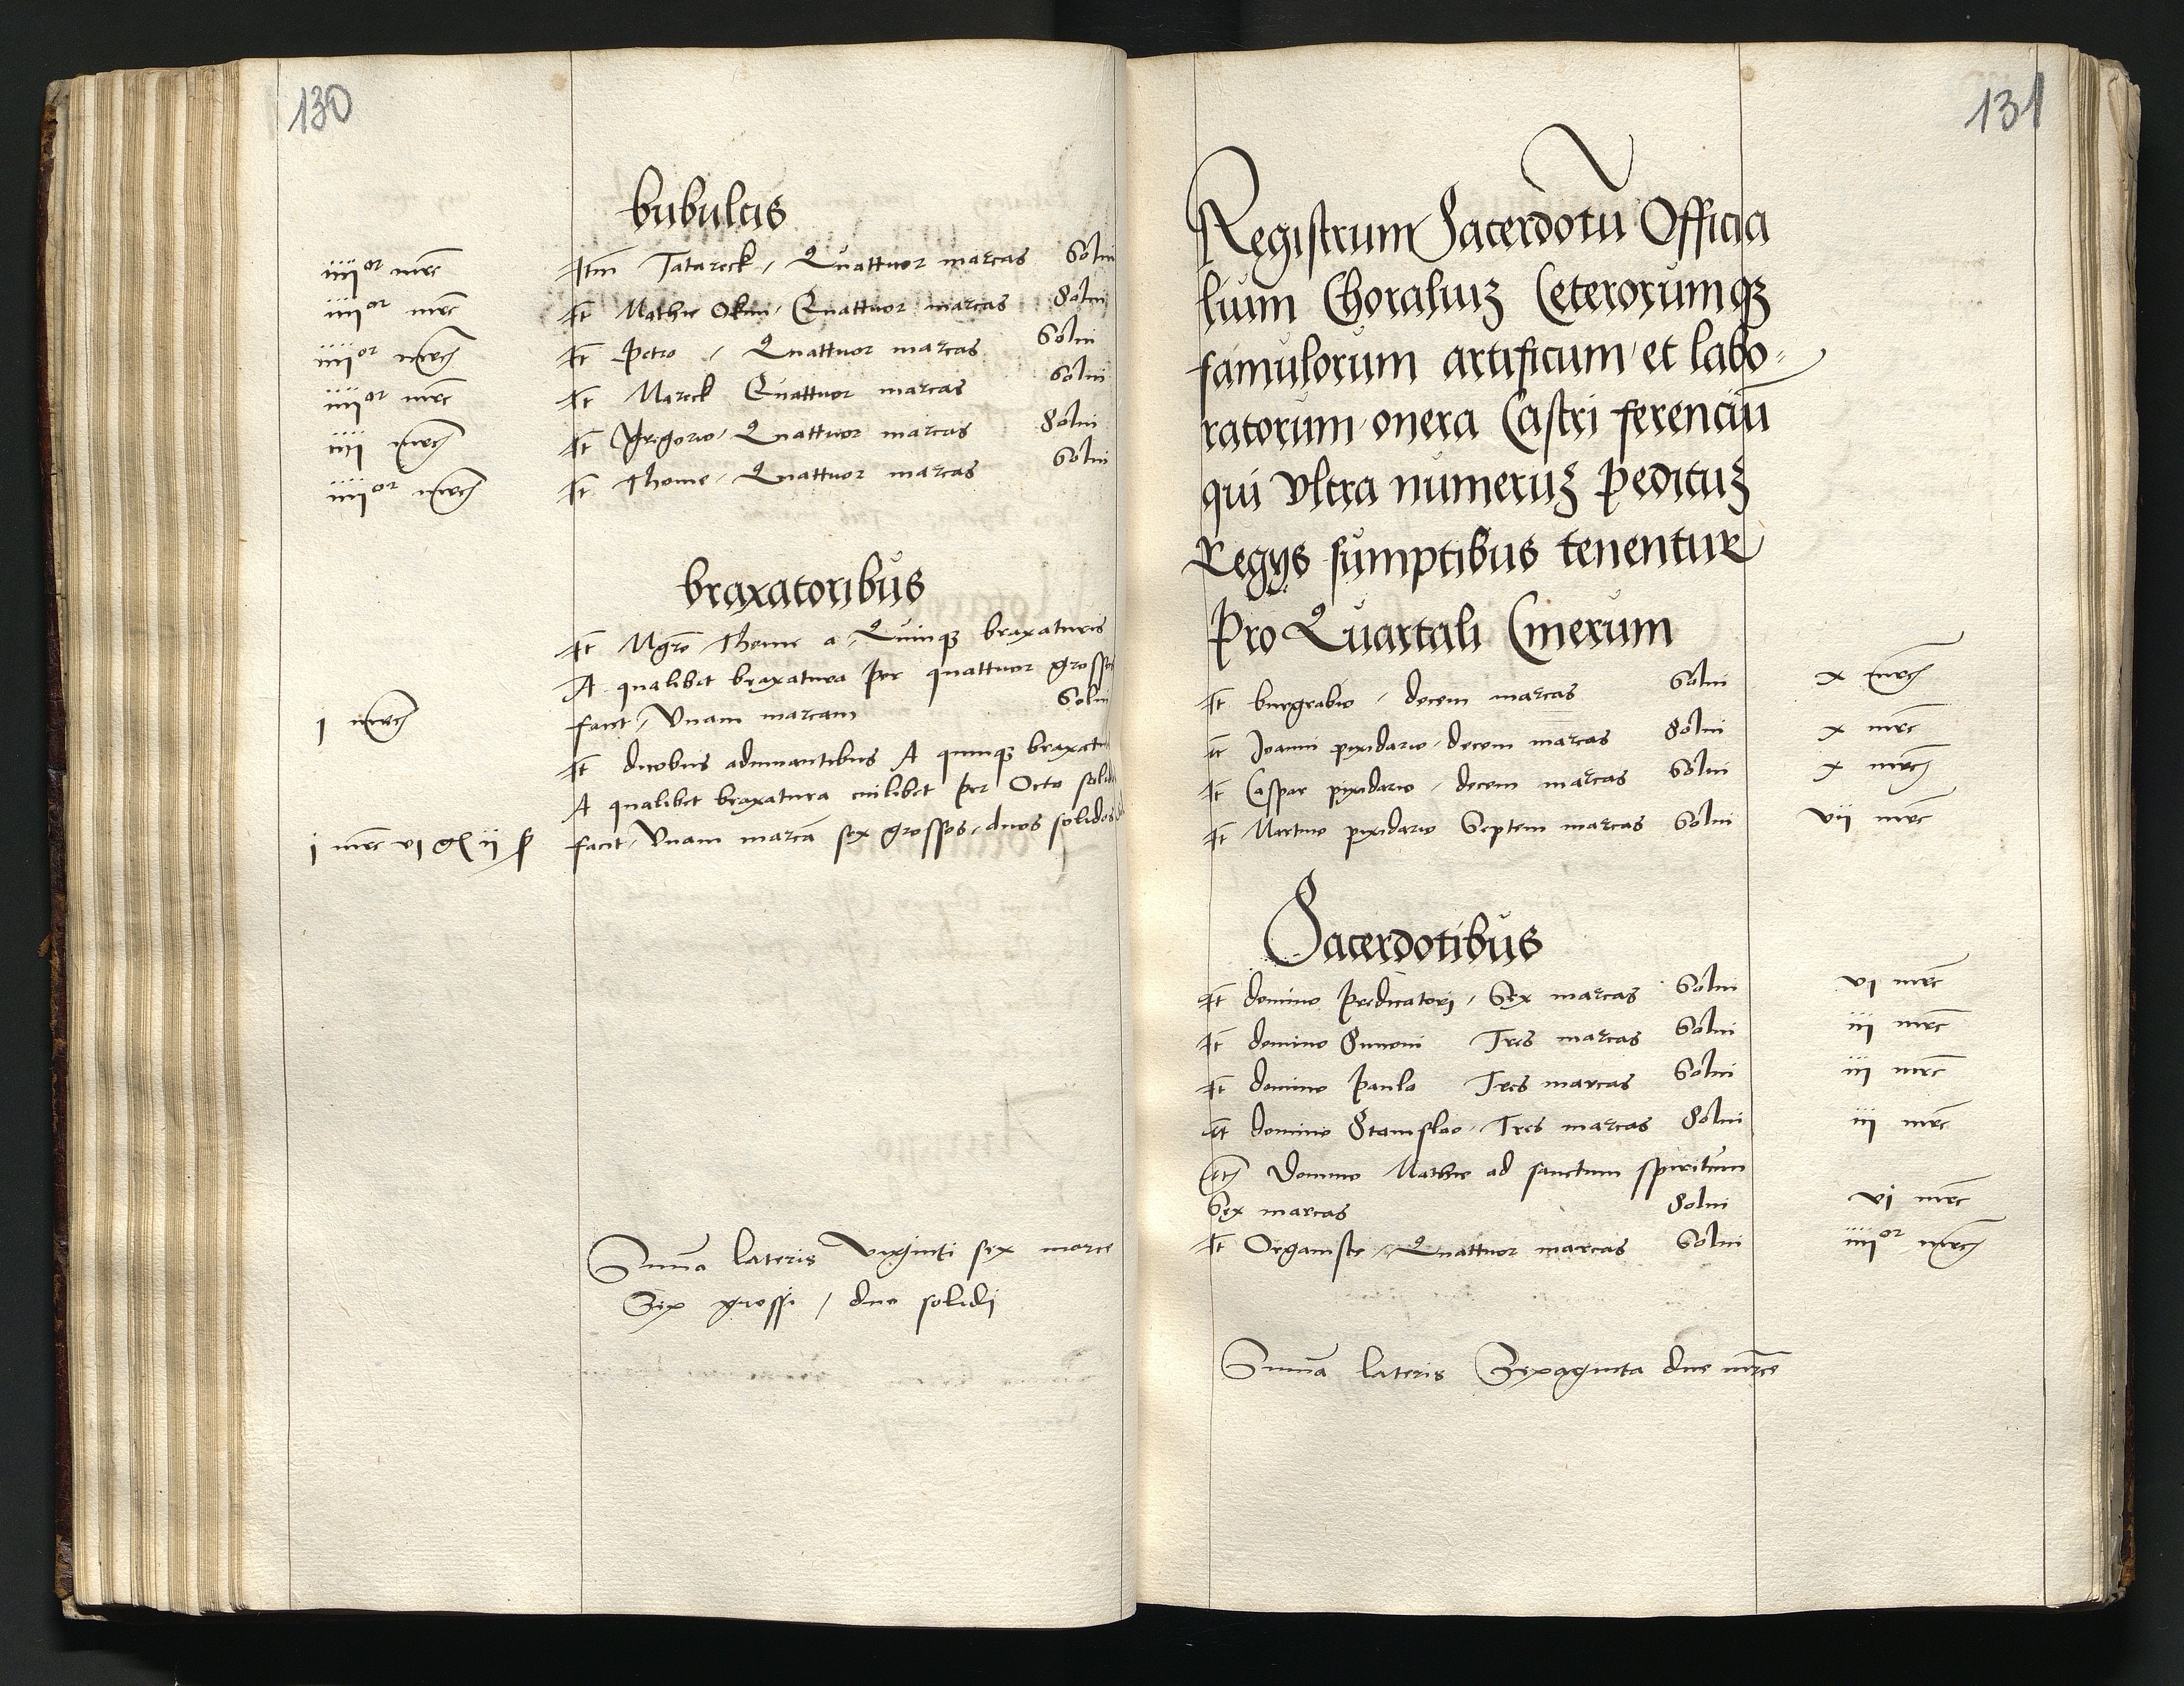 130
bubulcis
iiii or mrc Itm Tatareck / Quattuor marcas Solui
iiii or mrc It Mathie Okun / Quattuor marcas Solui
iiii or mrc It Petro / Quattuor marcas Solui
iiii or mrc It Mareck Quattuor marcas Solui
iiii mrc It Gregorio / Quattuor marcas Solui
iiii or mrc It Thome / Quattuor marcas Solui
braxatoribus
It Mgro Thome a / Quinqz braxaturis
A qualibet braxatura Per quattuor grossos
i mrc facit / Vnam marcam Solui
It duobus adiuuantibus A quinqz braxatu
A qualibet braxatura cuilibet per Octo solid
i mrc vi g ii s facit / Vnam marca sex grossos / duos solidos
Suma lateris Viginti sex marce
Sex grossi / duo solidi
131
Registrum Sacerdotu Officia
lium Choraliuz Ceterorumqz
famulorum artificum et labo-
ratorum onera Castri ferenciu
qui Vltra numeruz Pedituz
Regys sumptibus tenentur
Pro Quartali Cinerum
It burgrabio / decem marcas Solui x mrc
It Joanni pixidario / decem marcas Solui x mrc
It Caspar pixidario / decem marcas Solui x mrc
It Martino pixidario Septem marcas Solui vii mrc
Sacerdotibus
It domino Predicatori / Sex marcas Solui vi mrc
It domino Simoni Tres marcas Solui iii mrc
It domino Paulo Tres marcas Solui iii mrc
It domino Stanislao / Tres marcas Solui iii mrc
It Domino Mathie ad sanctum spiritum
Sex marcas Solui vi mrc
It Organiste / Quattuor marcas Solui iiii or mrc
Suma lateris Sexaginta due mrce